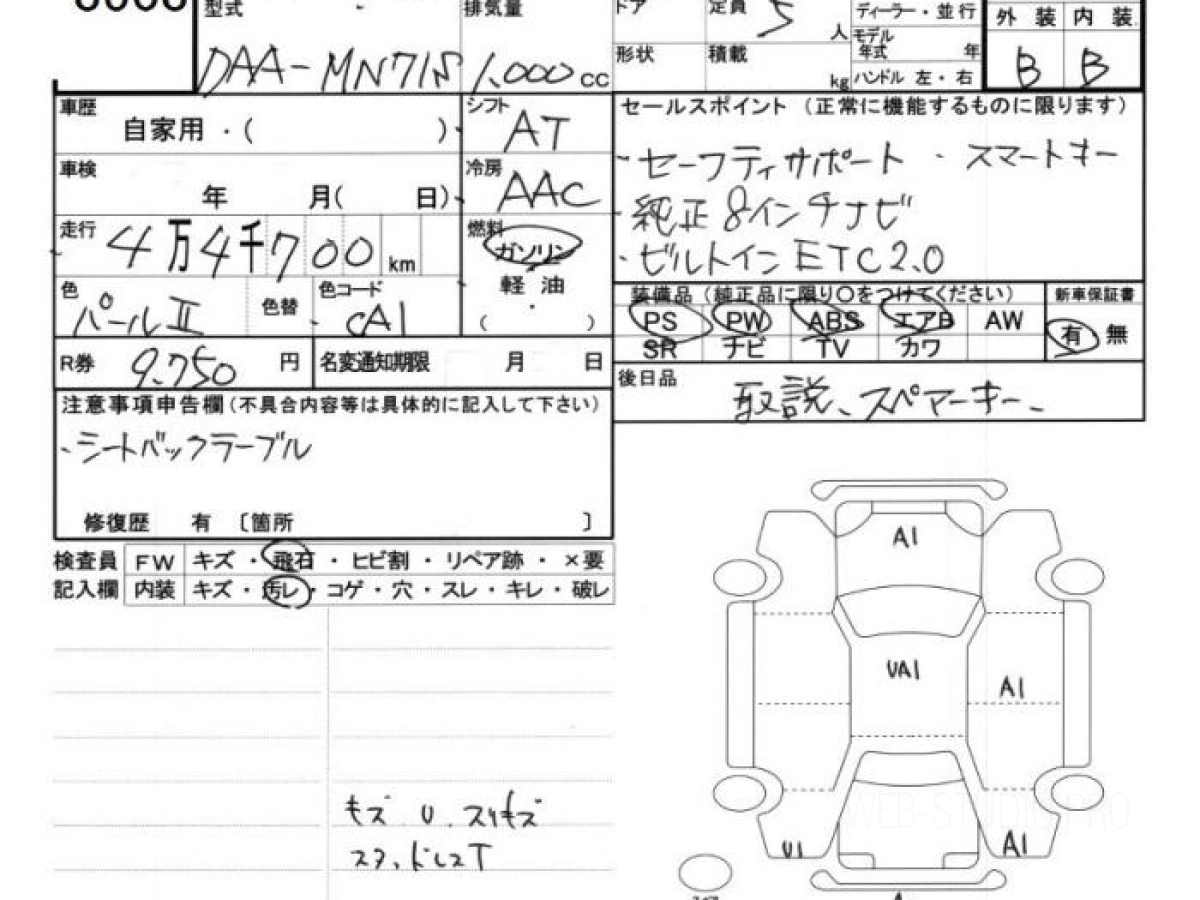 型式 排気量 ドア 定員 5 人 ディーラー・並行 外装 内装
DAA-MN71S 1,000 cc 形状 積載 kg モデル年式 年 ハンドル 左・右 B B
車歴 自家用・( )
シフト AT
セールスポイント (正常に機能するものに限ります)
・セーフティサポート ・スマートキー
車検 年 月( 日)
冷房 AAC
純正8インチナビ
走行 4万4千700 km
燃料 ガソリン
軽油
( )
・ビルトインETC2.0
色 パールⅡ 色替 色コード
装備品 (純正品に限り○をつけてください) 新車保証書
PS PW ABS エアB AW 有 無
SR ナビ TV カワ
R券 9,750 円 名変通知期限 月 日
後日品 取説、スペアーキー、
注意事項申告欄(不具合内容等は具体的に記入して下さい)
・シートバックテーブル
修復歴 有 〔箇所 〕
検査員 FW キズ・飛石・ヒビ割・リペア跡・×要
記入欄 内装 キズ・汚レ・コゲ・穴・スレ・キレ・破レ
A1
UA1
A1
キズ U. スリキズ
U1
A1
WEB-STUDIO PRO